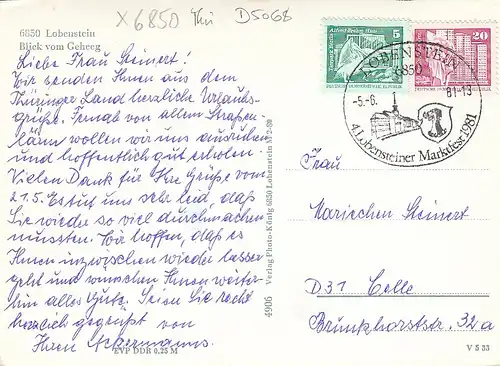 X 6850 Thü D5068
6850 Lobenstein
Blick vom Geheeg
Liebe Frau Steinert!
Wir senden Ihnen aus dem
Thüringer Land herzliche Urlaubs-
grüße. Fernab von allem Straßen-
lärm wollen wir uns ausruhen
und hoffentlich gut erholen.
Vielen Dank für Ihre Grüße vom
21.5. Es tut uns sehr leid, daß
Sie wieder so viel durchmachen
mussten. Wir hoffen, daß es
Ihnen inzwischen wieder besser
geht und wünschen Ihnen weiter-
hin alles Gute. Seien Sie recht
herzlich gegrüßt von
Ihren Ackermanns.
EVP DDR 0,25 M
4906 Verlag Photo-König 6850 Lobenstein
5
20
LOBENSTEIN
6850
-5.-6. 81-13
4. Lobensteiner Marktfest 1981
Frau
Mariechen Steinert
D31 Celle
Brunkhorststr. 32a
V 5 33